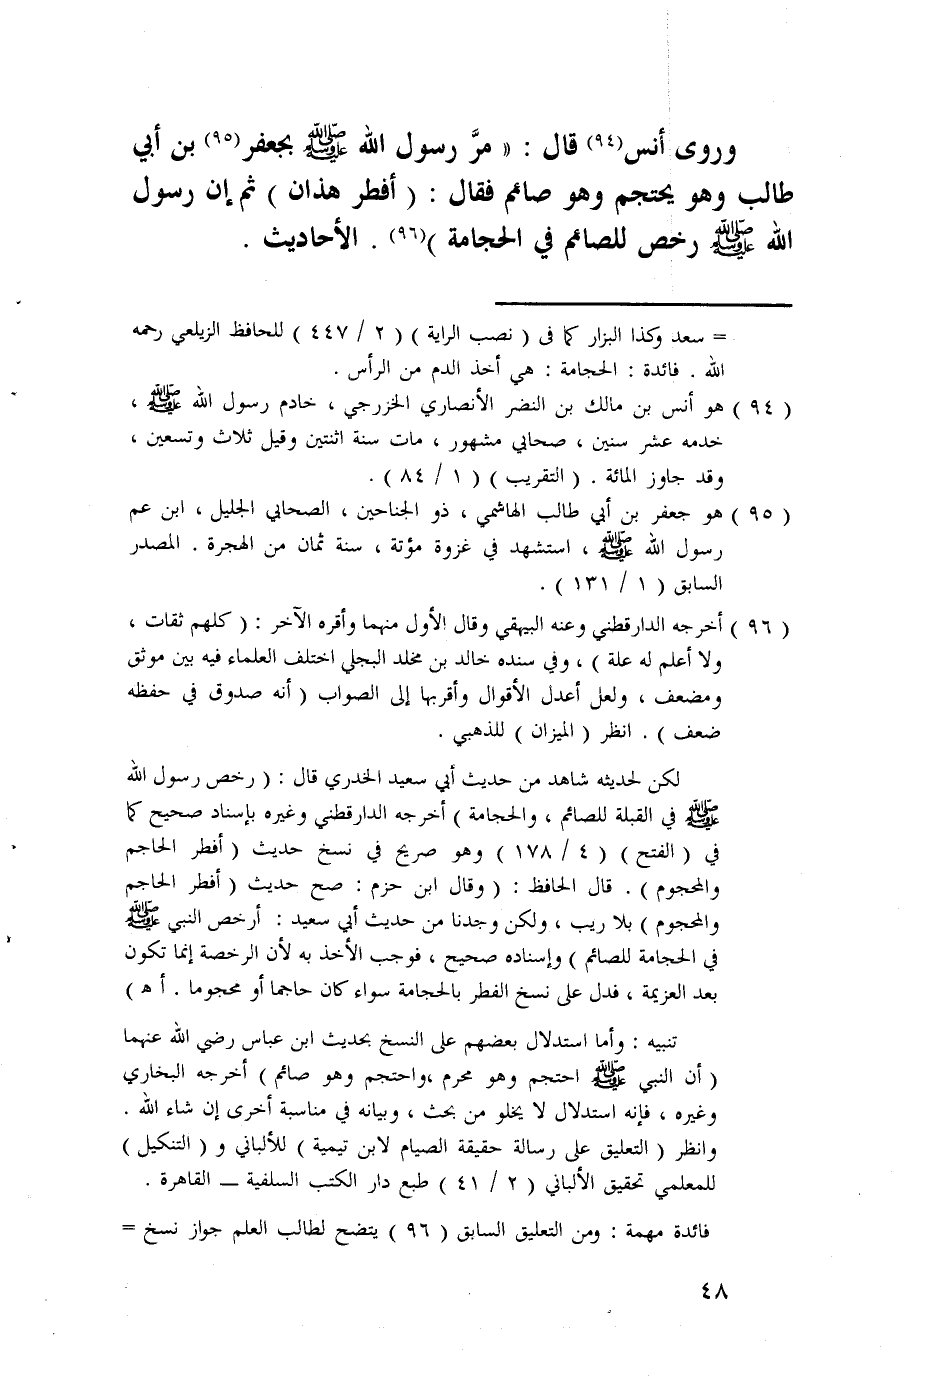 وروى أنس(٩٤) قال : « مرَّ رسول الله ﷺ بجعفر(٩٥) بن أبي
طالب وهو يحتجم وهو صائم فقال : ( أفطر هذان ) ثم إن رسول
الله ﷺ رخص للصائم في الحجامة )(٩٦) . الأحاديث .
= سعد وكذا البزار كما فى ( نصب الراية ) ( ٢ / ٤٤٧ ) للحافظ الزيلعي رحمه
الله . فائدة : الحجامة : هي أخذ الدم من الرأس .
( ٩٤ ) هو أنس بن مالك بن النضر الأنصاري الخزرجي ، خادم رسول الله ﷺ ،
خدمه عشر سنين ، صحابي مشهور ، مات سنة اثنتين وقيل ثلاث وتسعين ،
وقد جاوز المائة . ( التقريب ) ( ١ / ٨٤ ) .
( ٩٥ ) هو جعفر بن أبي طالب الهاشمي ، ذو الجناحين ، الصحابي الجليل ، ابن عم
رسول الله ﷺ ، استشهد في غزوة مؤتة ، سنة ثمان من الهجرة . المصدر
السابق ( ١ / ١٣١ ) .
( ٩٦ ) أخرجه الدارقطني وعنه البيهقي وقال الأول منهما وأقره الآخر : ( كلهم ثقات ،
ولا أعلم له علة ) ، وفي سنده خالد بن مخلد البجلي اختلف العلماء فيه بين موثق
ومضعف ، ولعل أعدل الأقوال وأقربها إلى الصواب ( أنه صدوق في حفظه
ضعف ) . انظر ( الميزان ) للذهبي .
لكن لحديثه شاهد من حديث أبي سعيد الخدري قال : ( رخص رسول الله
ﷺ في القبلة للصائم ، والحجامة ) أخرجه الدارقطني وغيره بإسناد صحيح كما
في ( الفتح ) ( ٤ / ١٧٨ ) وهو صريح في نسخ حديث ( أفطر الحاجم
والمحجوم ) . قال الحافظ : ( وقال ابن حزم : صح حديث ( أفطر الحاجم
والمحجوم ) بلا ريب ، ولكن وجدنا من حديث أبي سعيد : أرخص النبي ﷺ
في الحجامة للصائم ) وإسناده صحيح ، فوجب الأخذ به لأن الرخصة إنما تكون
بعد العزيمة ، فدل على نسخ الفطر بالحجامة سواء كان حاجما أو محجوما . أ هـ )
تنبيه : وأما استدلال بعضهم على النسخ بحديث ابن عباس رضي الله عنهما
( أن النبي ﷺ احتجم وهو محرم ،واحتجم وهو صائم ) أخرجه البخاري
وغيره ، فإنه استدلال لا يخلو من بحث ، وبيانه في مناسبة أخرى إن شاء الله .
وانظر ( التعليق على رسالة حقيقة الصيام لابن تيمية ) للألباني و ( التنكيل )
للمعلمي تحقيق الألباني ( ٢ / ٤١ ) طبع دار الكتب السلفية ــ القاهرة .
فائدة مهمة : ومن التعليق السابق ( ٩٦ ) يتضح لطالب العلم جواز نسخ =
٤٨